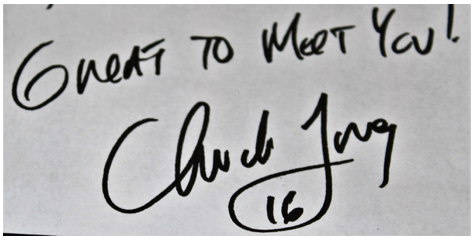 GREAT TO MEET YOU!
Chuck Long
16